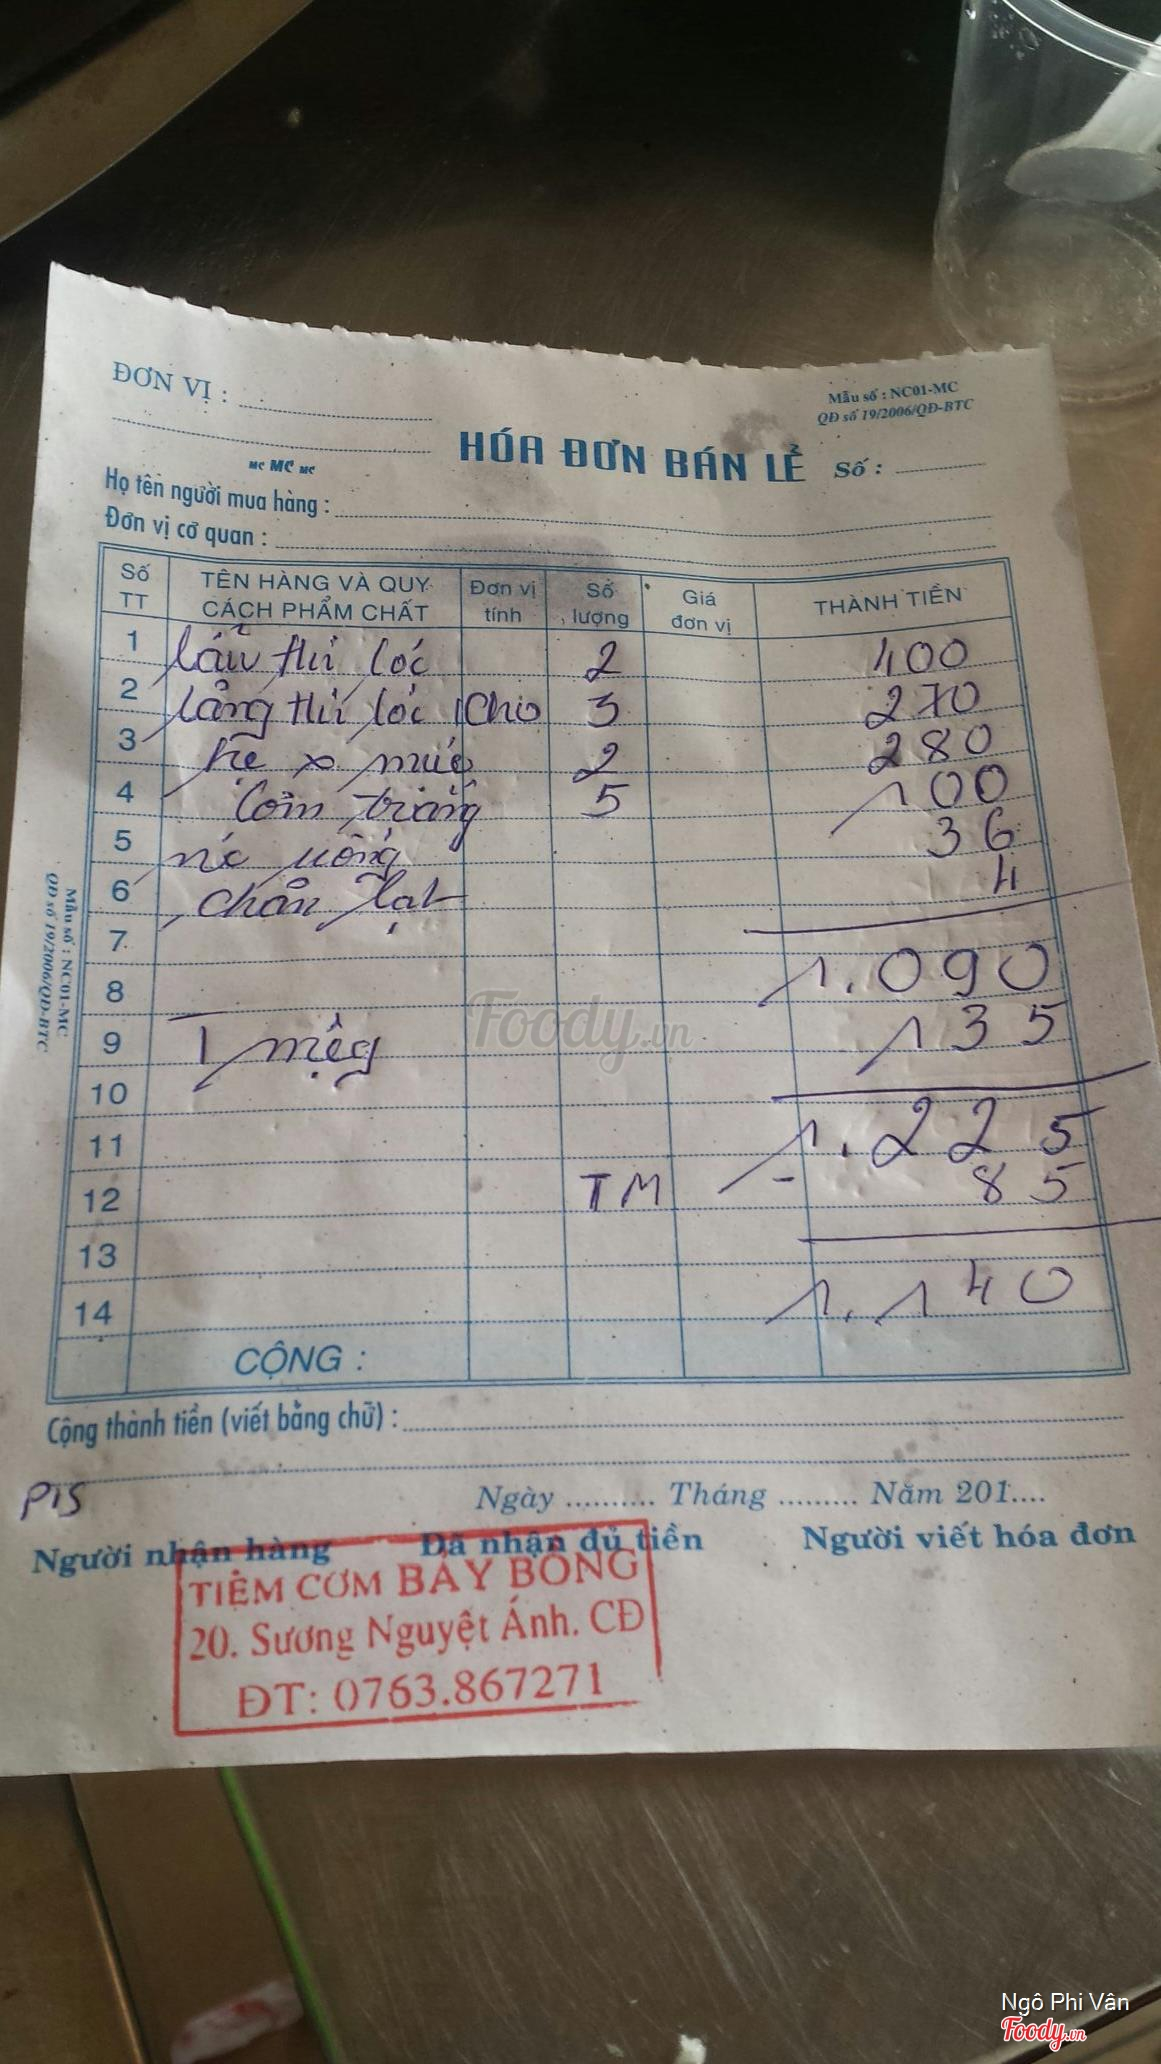 ĐƠN VỊ :
Mẫu số : NC01-MC
QĐ số 19/2006/QĐ-BTC
HÓA ĐƠN BÁN LẺ
Số :
MC MC MC
Họ tên người mua hàng :
Đơn vị cơ quan :
Số TT TÊN HÀNG VÀ QUY CÁCH PHẨM CHẤT Đơn vị tính Số lượng Giá đơn vị THÀNH TIỀN
1 lẩu lóc 2 400
2 lóc 3 270
3 2 280
4 Cơm trắng 5 100
5 nc uống 36
6 khăn lạt 4
7
8 1.090
9 1 135
10
11 1.225
12 TM - 85
13
14 1.140
CỘNG :
Cộng thành tiền (viết bằng chữ) :
P15
Ngày .......... Tháng ......... Năm 201....
Người nhận hàng Đã nhận đủ tiền Người viết hóa đơn
TIỆM CƠM BẢY BỒNG
20. Sương Nguyệt Ánh. CĐ
ĐT: 0763.867271
Mẫu số : NC01-MC
QĐ số 19/2006/QĐ-BTC
Foody.vn
Ngô Phi Vân
Foody.vn